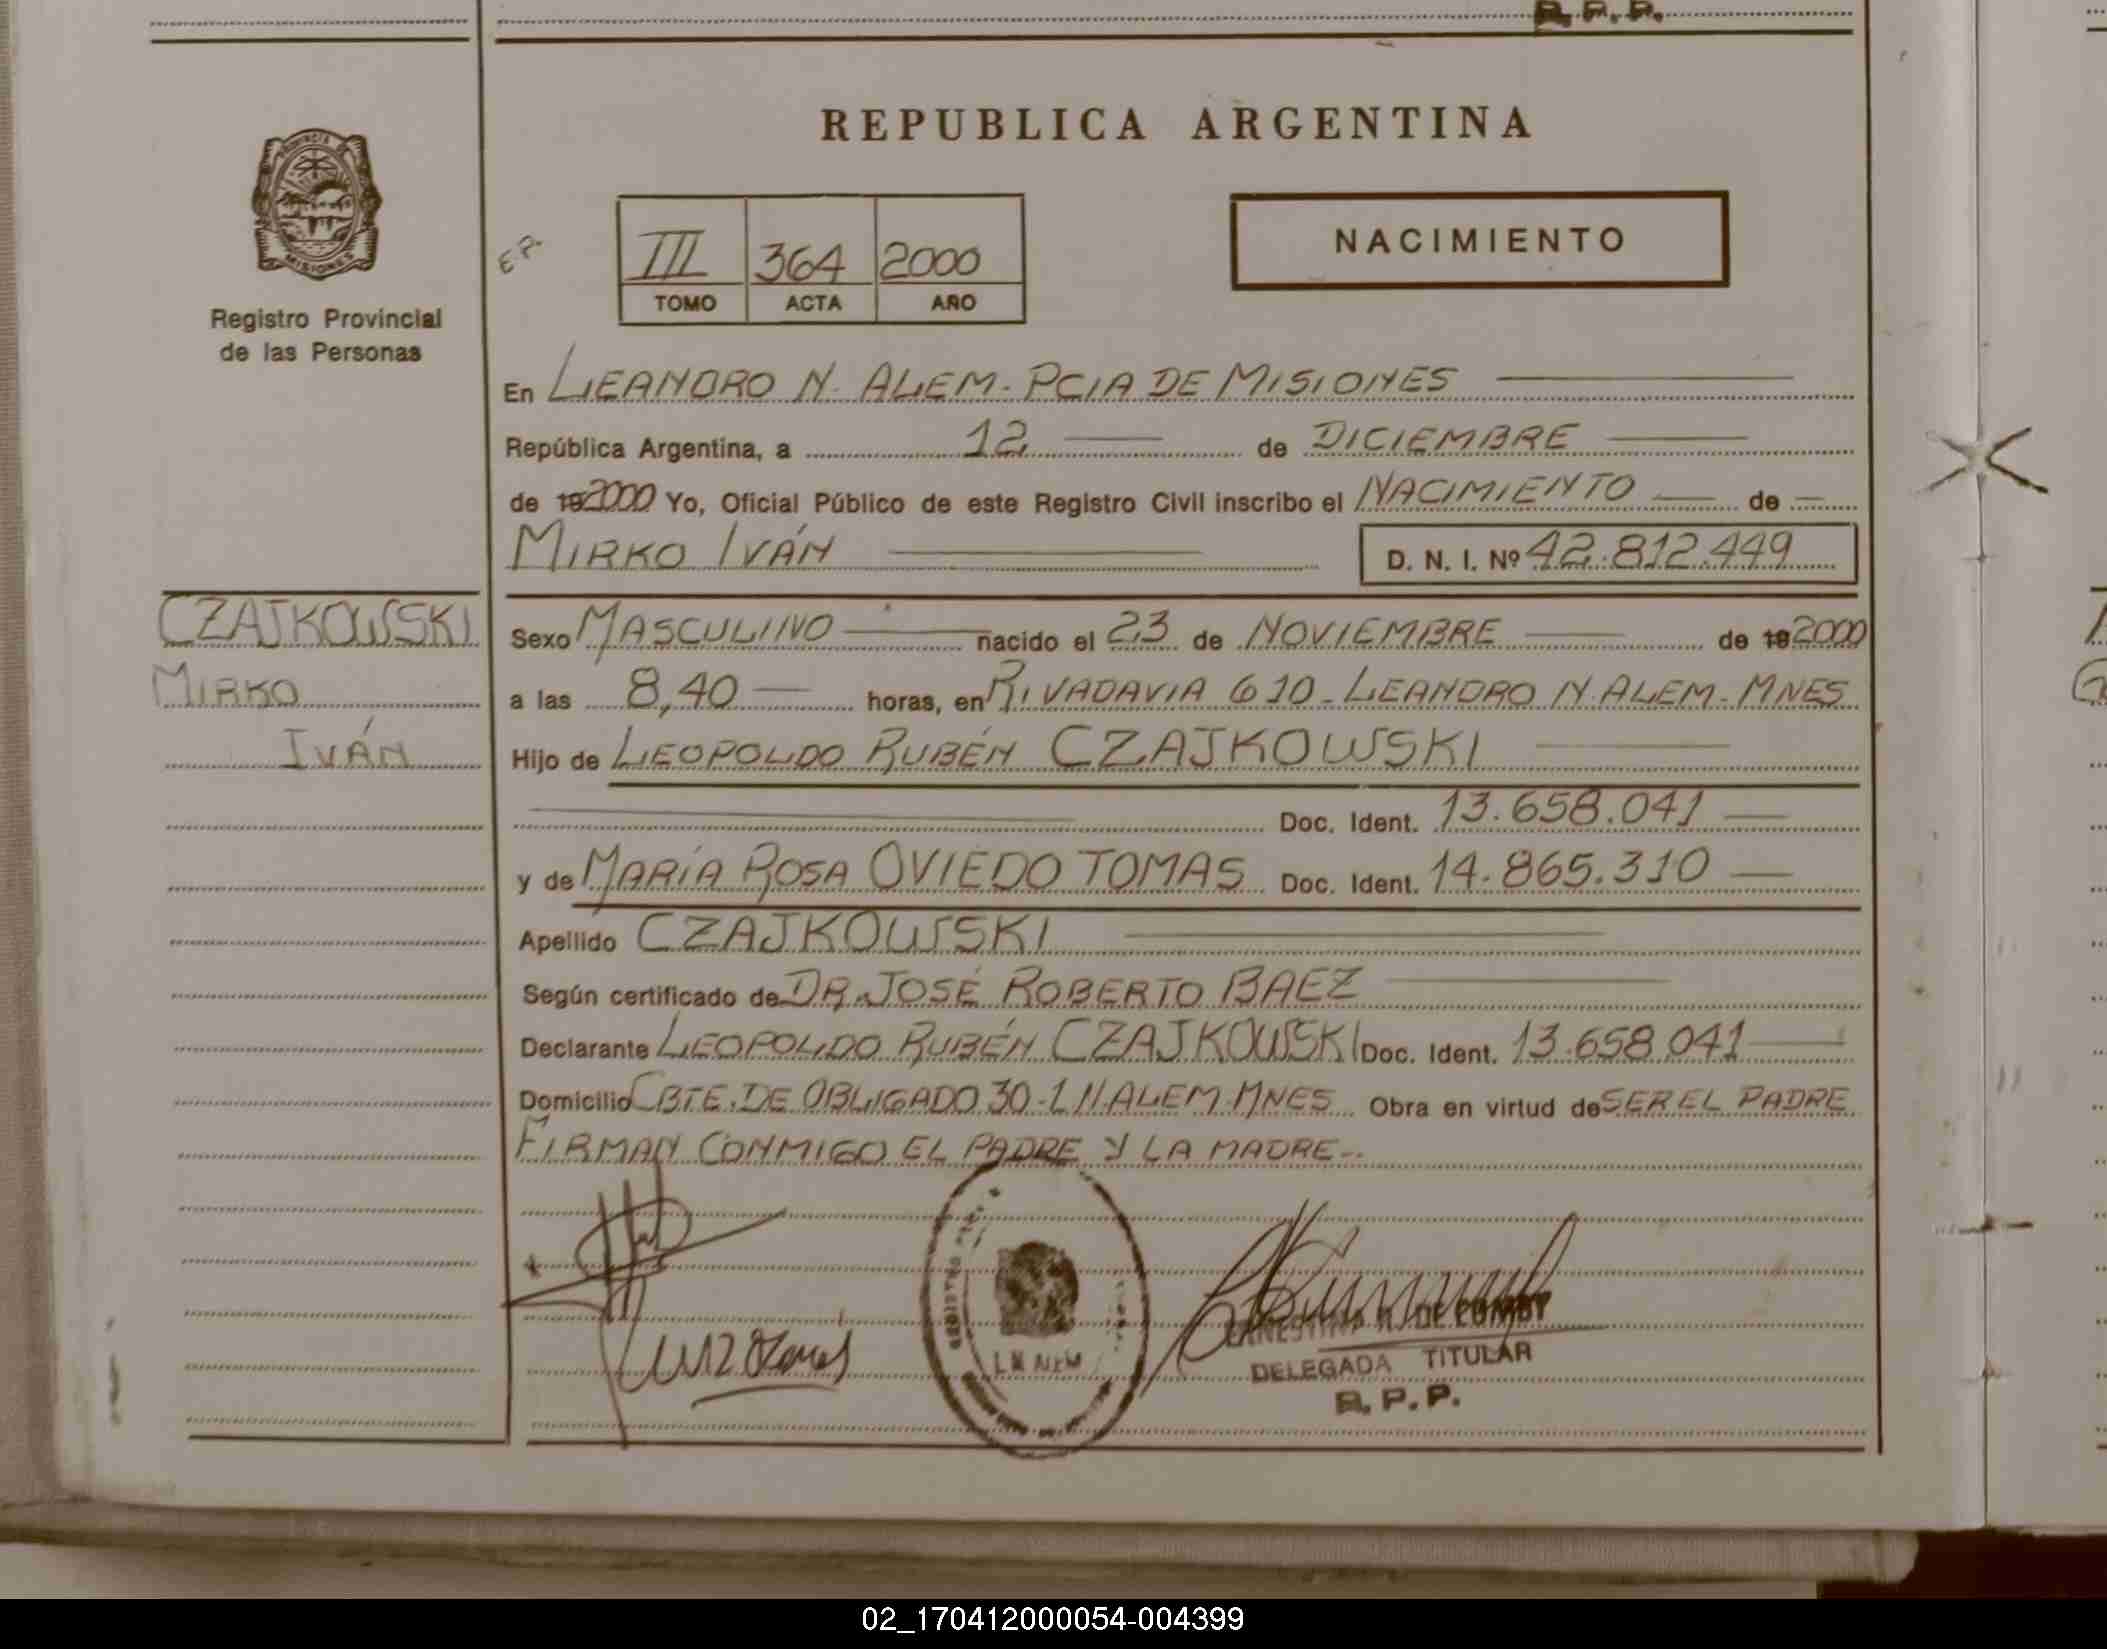 R. P. P.
REPUBLICA ARGENTINA
PROVINCIA DE
MISIONES
Registro Provincial
de las Personas
III 364 2000
TOMO ACTA AÑO
NACIMIENTO
En LEANDRO N. ALEM - PCIA DE MISIONES
República Argentina, a 12 de DICIEMBRE
de 192000 Yo, Oficial Público de este Registro Civil inscribo el NACIMIENTO de
MIRKO IVÁN D. N. I. Nº 42.812.449
CZAJKOWSKI
MIRKO
IVÁN
Sexo MASCULINO nacido el 23 de NOVIEMBRE de 192000
a las 8,40 horas, en RIVADAVIA 610 - LEANDRO N. ALEM - MNES
Hijo de LEOPOLDO RUBÉN CZAJKOWSKI
Doc. Ident. 13.658.041
y de MARÍA ROSA OVIEDO TOMAS Doc. Ident. 14.865.310
Apellido CZAJKOWSKI
Según certificado de DR. JOSÉ ROBERTO BAEZ
Declarante LEOPOLDO RUBÉN CZAJKOWSKI Doc. Ident. 13.658.041
Domicilio CBTE. DE OBLIGADO 30 - L N ALEM - MNES Obra en virtud de SER EL PADRE
FIRMAN CONMIGO EL PADRE Y LA MADRE -
DELEGADA TITULAR
R. P. P.
02_170412000054-004399